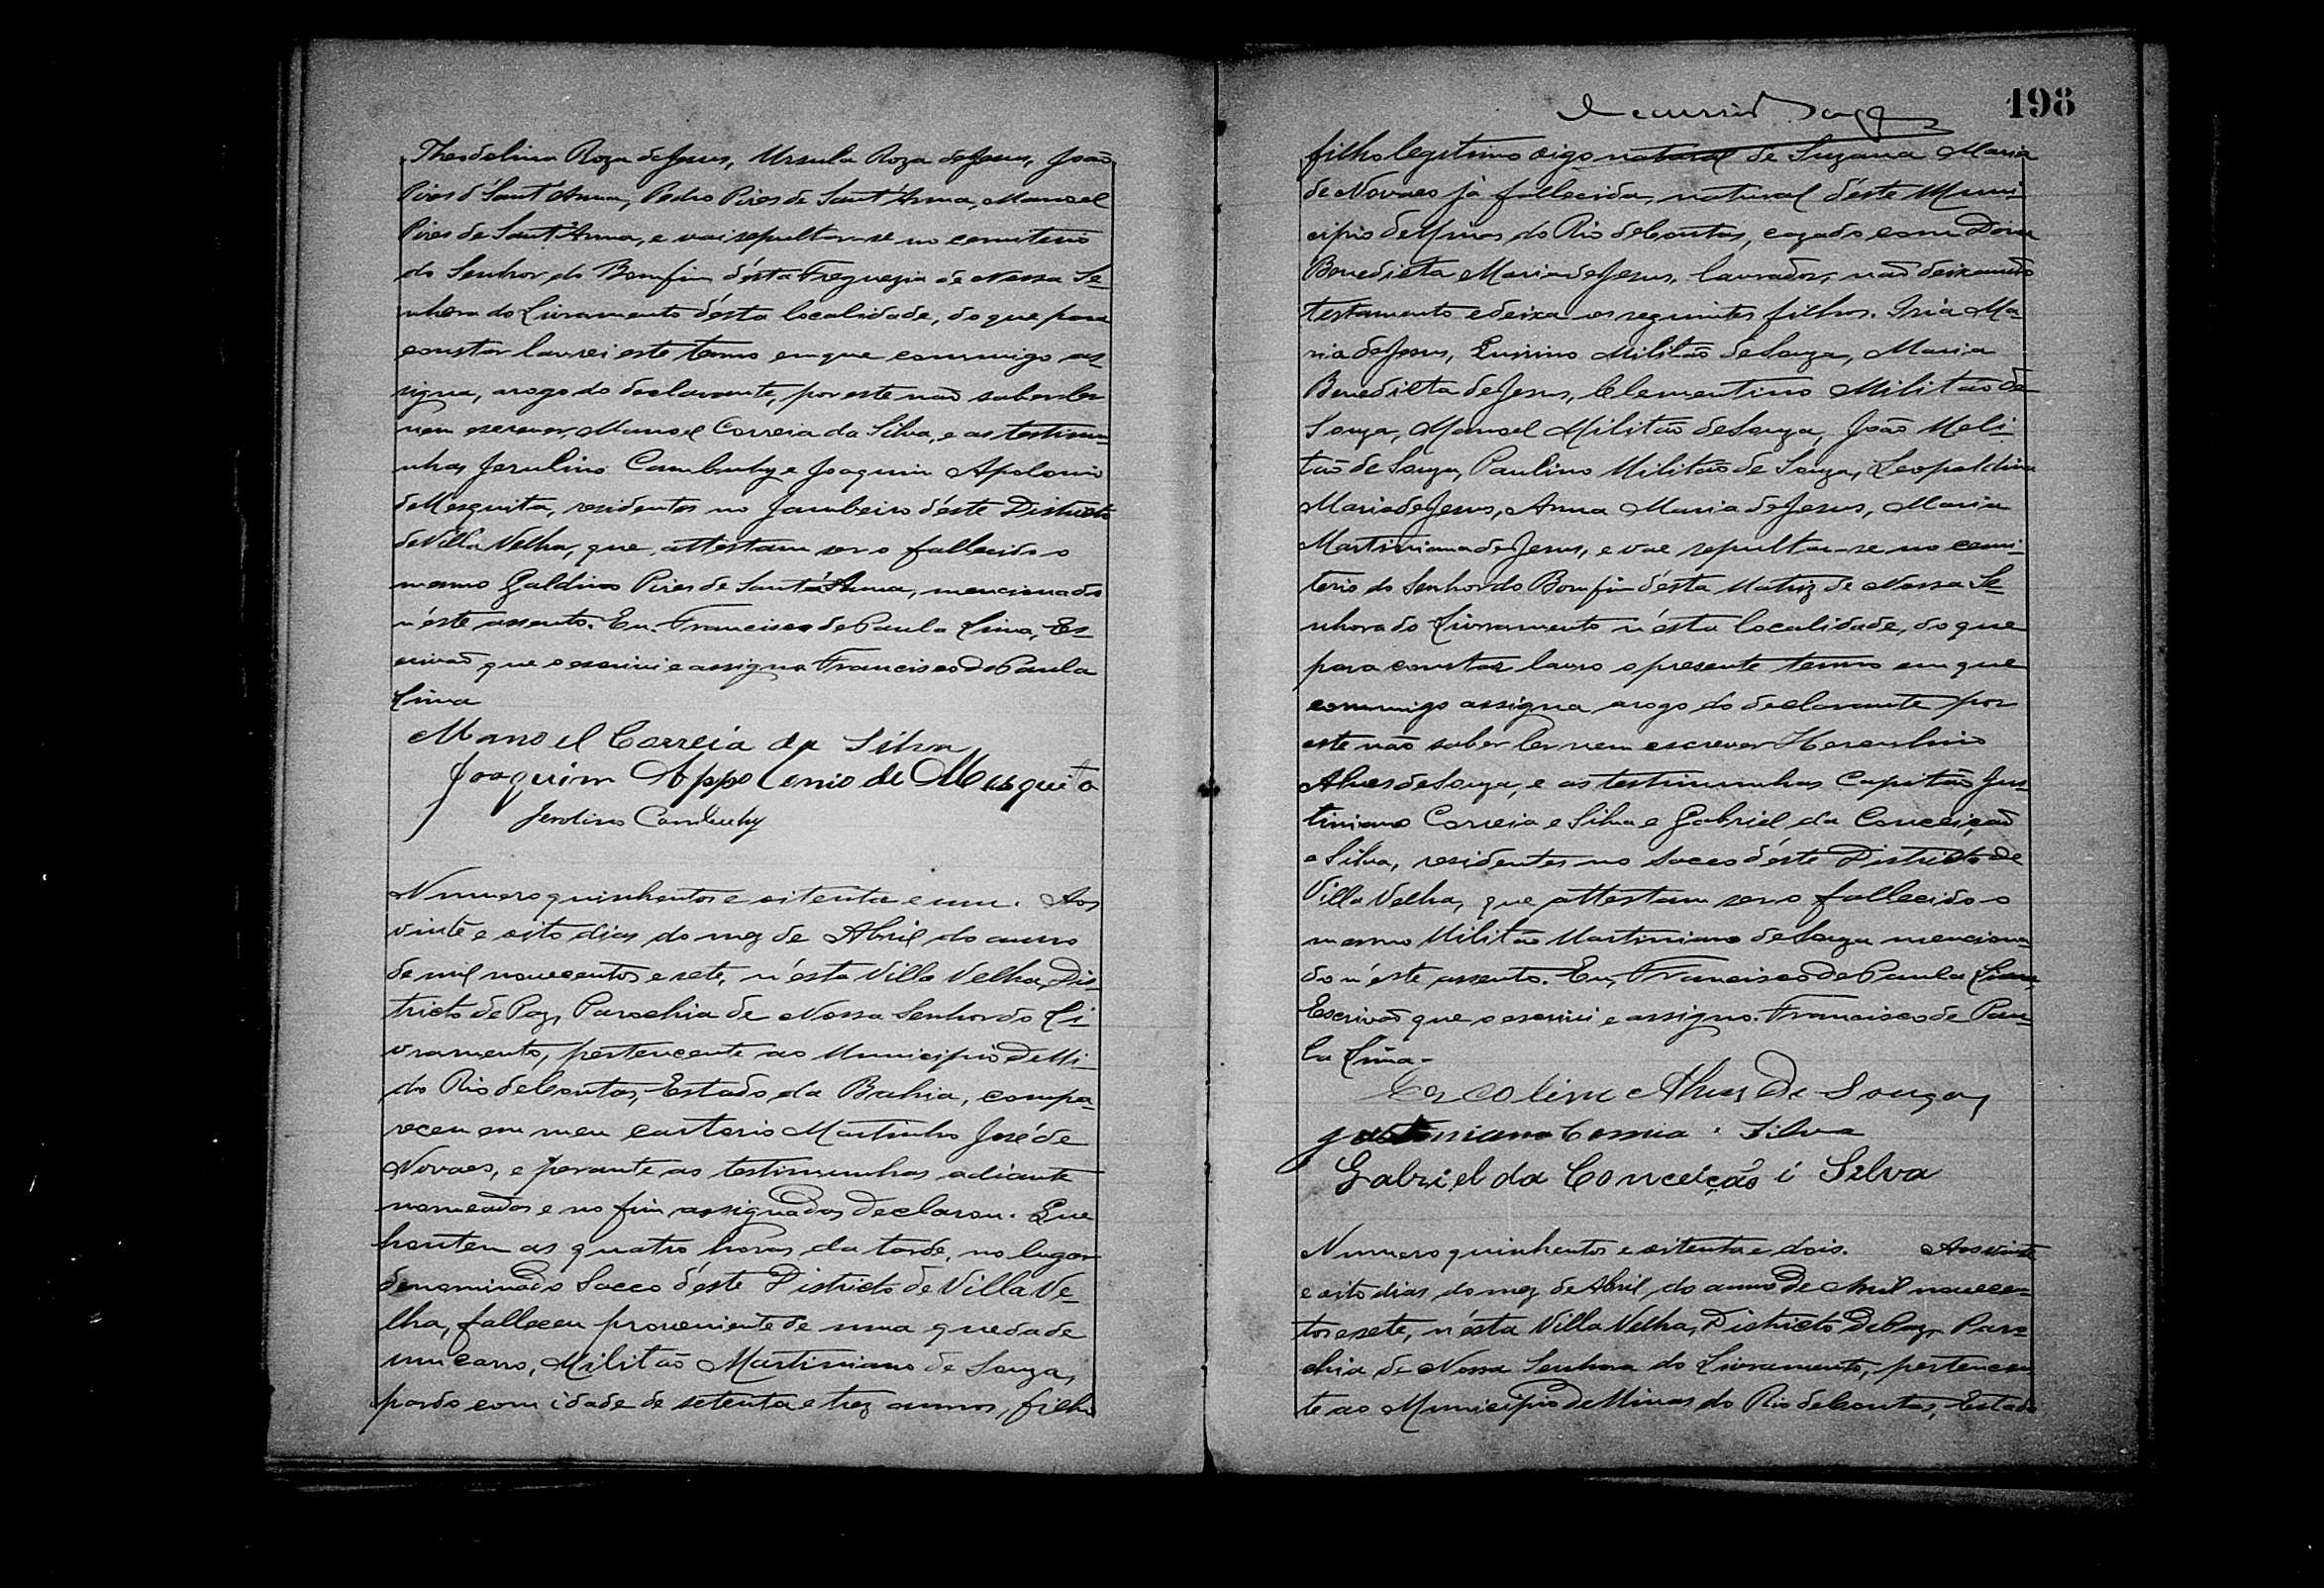 Theodolina Roza de Jesus, Ursula Roza de Jesus, João
Pires d'Sant'Anna, Pedro Pires de Sant'Anna, Manoel
Pires de Sant'Anna, e vai sepultar-se no cemiterio
do Senhor do Bomfim d'ésta Freguezia de Nossa Se-
nhora do Livramento d'ésta localidade, do que para
constar lavrei este termo em que commigo as-
signa, arogo do declarante, por este não saber ler
nem escrever, Manoel Correia da Silva, e as testimu-
nhas Jerulino Cambuhy e Joaquim Apolonio
de Mesquita, residentes no Jambeiro d'éste Districto
de Villa Velha, que attestam ser o fallecido o
mesmo Galdino Pires de Sant'Anna, mencionado
n'éste assento. Eu. Francisco de Paula Lima, Es-
crivão que o escrivi e assigno Francisco de Paula
Lima
Manoel Correia da Silva
Joaquim Appolonio de Mesquita
Jerolino Cambuhy
Numero quinhentos e oitenta e um. Aos
vinte e oito dias do mez de Abril do anno
de mil novecentos e sete, n'ésta Villa Velha, Dis-
tricto de Paz, Parochia de Nossa Senhor do Li-
vramento, pertencente ao Municipio de Mi-
do Rio de Contas, Estado da Bahia, compa-
receu em meu cartorio Martinho José de
Novaes, e perante as testimunhas adiante
nomeadas e no fim assignadas declarou. Que
hontem as quatro horas da tarde, no lugar
denominado Sacco d'éste Districto de Villa Ve-
lha, falleceu proveniente de uma queda de
um carro, Militão Martiniano de Souza,
pardo com idade de setenta e trez annos, filho
198
filho legitimo digo natural de Suzana Maria
de Novaes já fallecida, natural d'éste Muni-
cipio de Minas do Rio de Contas, cazado com Dona
Benedicta Maria de Jesus, lavrador, não deixando
testamento e deixa os seguintes filhos. Iria Ma-
ria de Jesus, Quirino Militão de Souza, Maria
Benedicta de Jesus, Clementino Militão de
Souza, Manoel Militão de Souza, João Meli-
tão de Souza, Paulino Militão de Souza, Leopoldina
Maria de Jesus, Anna Maria de Jesus, Maria
Martiniana de Jesus, e vae sepultar-se no cemi-
terio do Senhor do Bomfim d'ésta Matriz de Nossa Se-
nhora do Livramento n'ésta localidade, do que
para constar lavro o presente termo em que
commigo assigna arogo do declarante por
este não saber ler nem escrever Herculino
Alves de Souza, e as testimunhas Capitão Jus-
tiniano Correia e Silva e Gabriel da Conceição
e Silva, residentes no Sacco d'éste Districto de
Villa Velha, que attestam ser o fallecido o
mesmo Militão Martiniano de Souza menciona-
do n'éste assento. Eu, Francisco de Paula Lima,
Escrivão que o escrivi e assigno. Francisco de Pau-
la Lima-
Ercolino Alves de Souza
Justiniano Correia Silva
Gabriel da Conceição i Silva
Numero quinhentos e oitenta e dois. Aos vinte
e oito dias do mez de Abril, do anno de mil novecen-
tos e sete, n'ésta Villa Velha, Districto de Paz, Paro-
chia de Nossa Senhora do Livramento, pertencen-
te ao Municipio de Minas do Rio de Contas, Estado